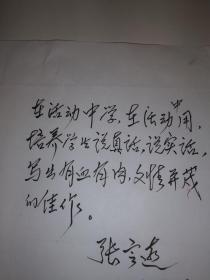 在活动中学，在活动中用，
培养学生说真话，说实话，
写出有血有肉，文情并茂
的佳作。
张